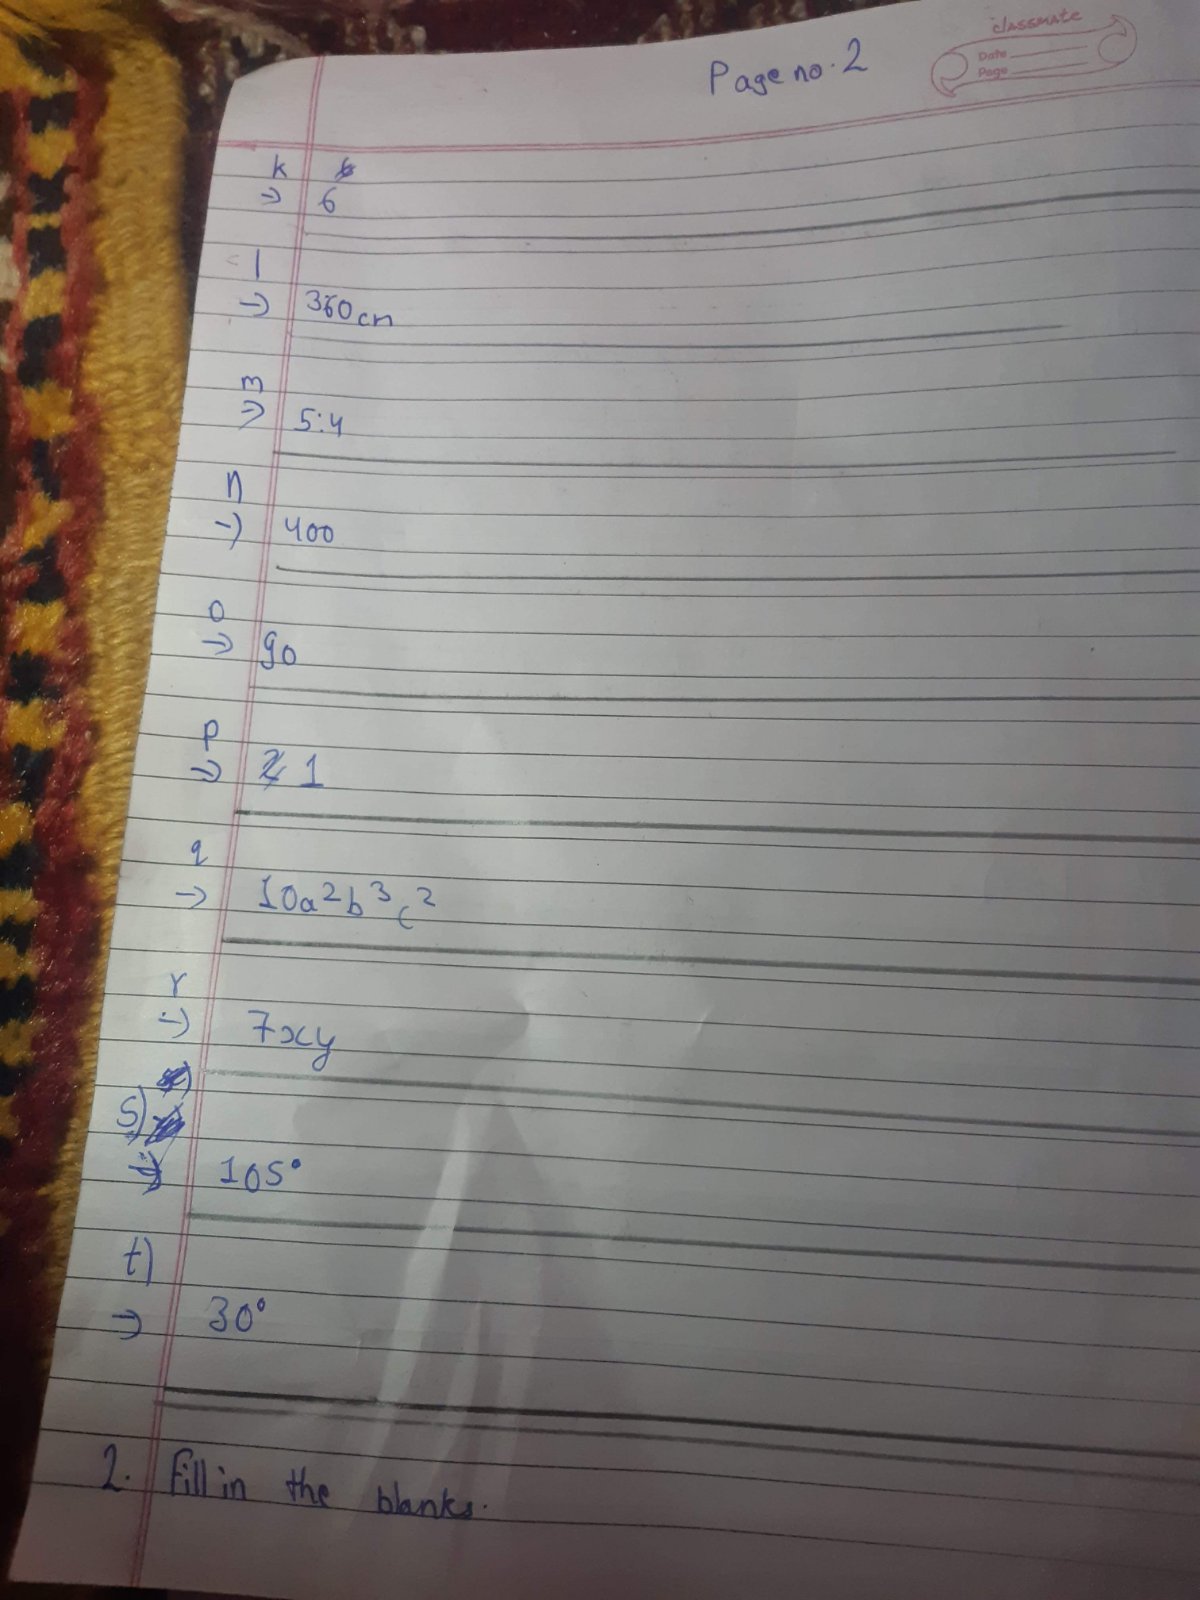 classmate
Date
Page
Page no. 2
k
→ 6
l
→ 360cm
m
→ 5:4
n
→ 400
o
→ 90
p
→ 1
q
→ 10a²b³c²
r
→ 7xy
s)
→ 105°
t)
→ 30°
2. Fill in the blanks.